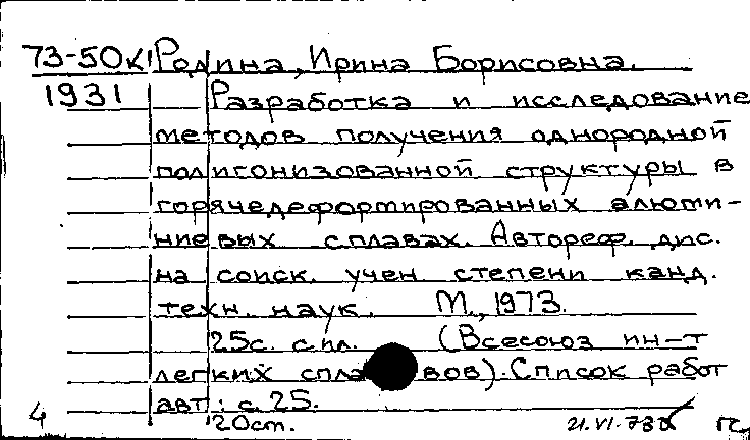 73-50к Родина, Ирина Борисовна.
1931 Разработка и исследование
методов получения однородной
полигонизованной структуры в
горячедеформированных алюми-
ниевых сплавах. Автореф. дис.
на соиск. учен степени канд.
техн. наук. М., 1973.
25с. с ил. (Всесоюз ин-т
легких спла вов). Список работ
авт.: с. 25.
4 20 cm. 21.VI-73